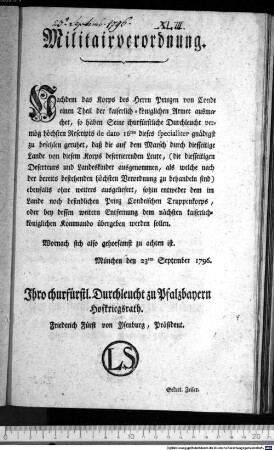 23. Septemb. 1796.
XLIII.
Militairverordnung.
Nachdem das Korps des Herrn Prinzen von Condé
einen Theil der kaiserlich-königlichen Armee ausma-
chet, so haben Seine churfürstliche Durchleucht ver-
mög höchsten Rescripts de dato 16ten dieses specialiter gnädigst
zu befehlen geruhet, daß die auf dem Marsch durch diesseitige
Lande von diesem Korps desertierenden Leute, (die diesseitigen
Deserteurs und Landeskinder ausgenommen, als welche nach
der bereits bestehenden höchsten Verordnung zu behandeln sind)
ebenfalls ohne weiters ausgeliefert, sohin entweder dem im
Lande noch befindlichen Prinz Condeischen Truppenkorps,
oder bey dessen weitern Entfernung dem nächsten kaiserlich-
königlichen Kommando übergeben werden sollen.
Wornach sich also gehorsamst zu achten ist.
München den 23ten September 1796.
Ihro churfürstl. Durchleucht zu Pfalzbayern
Hofkriegsrath.
Friederich Fürst von Ysenburg, Präsident.
LS
Sekret. Zeiler.